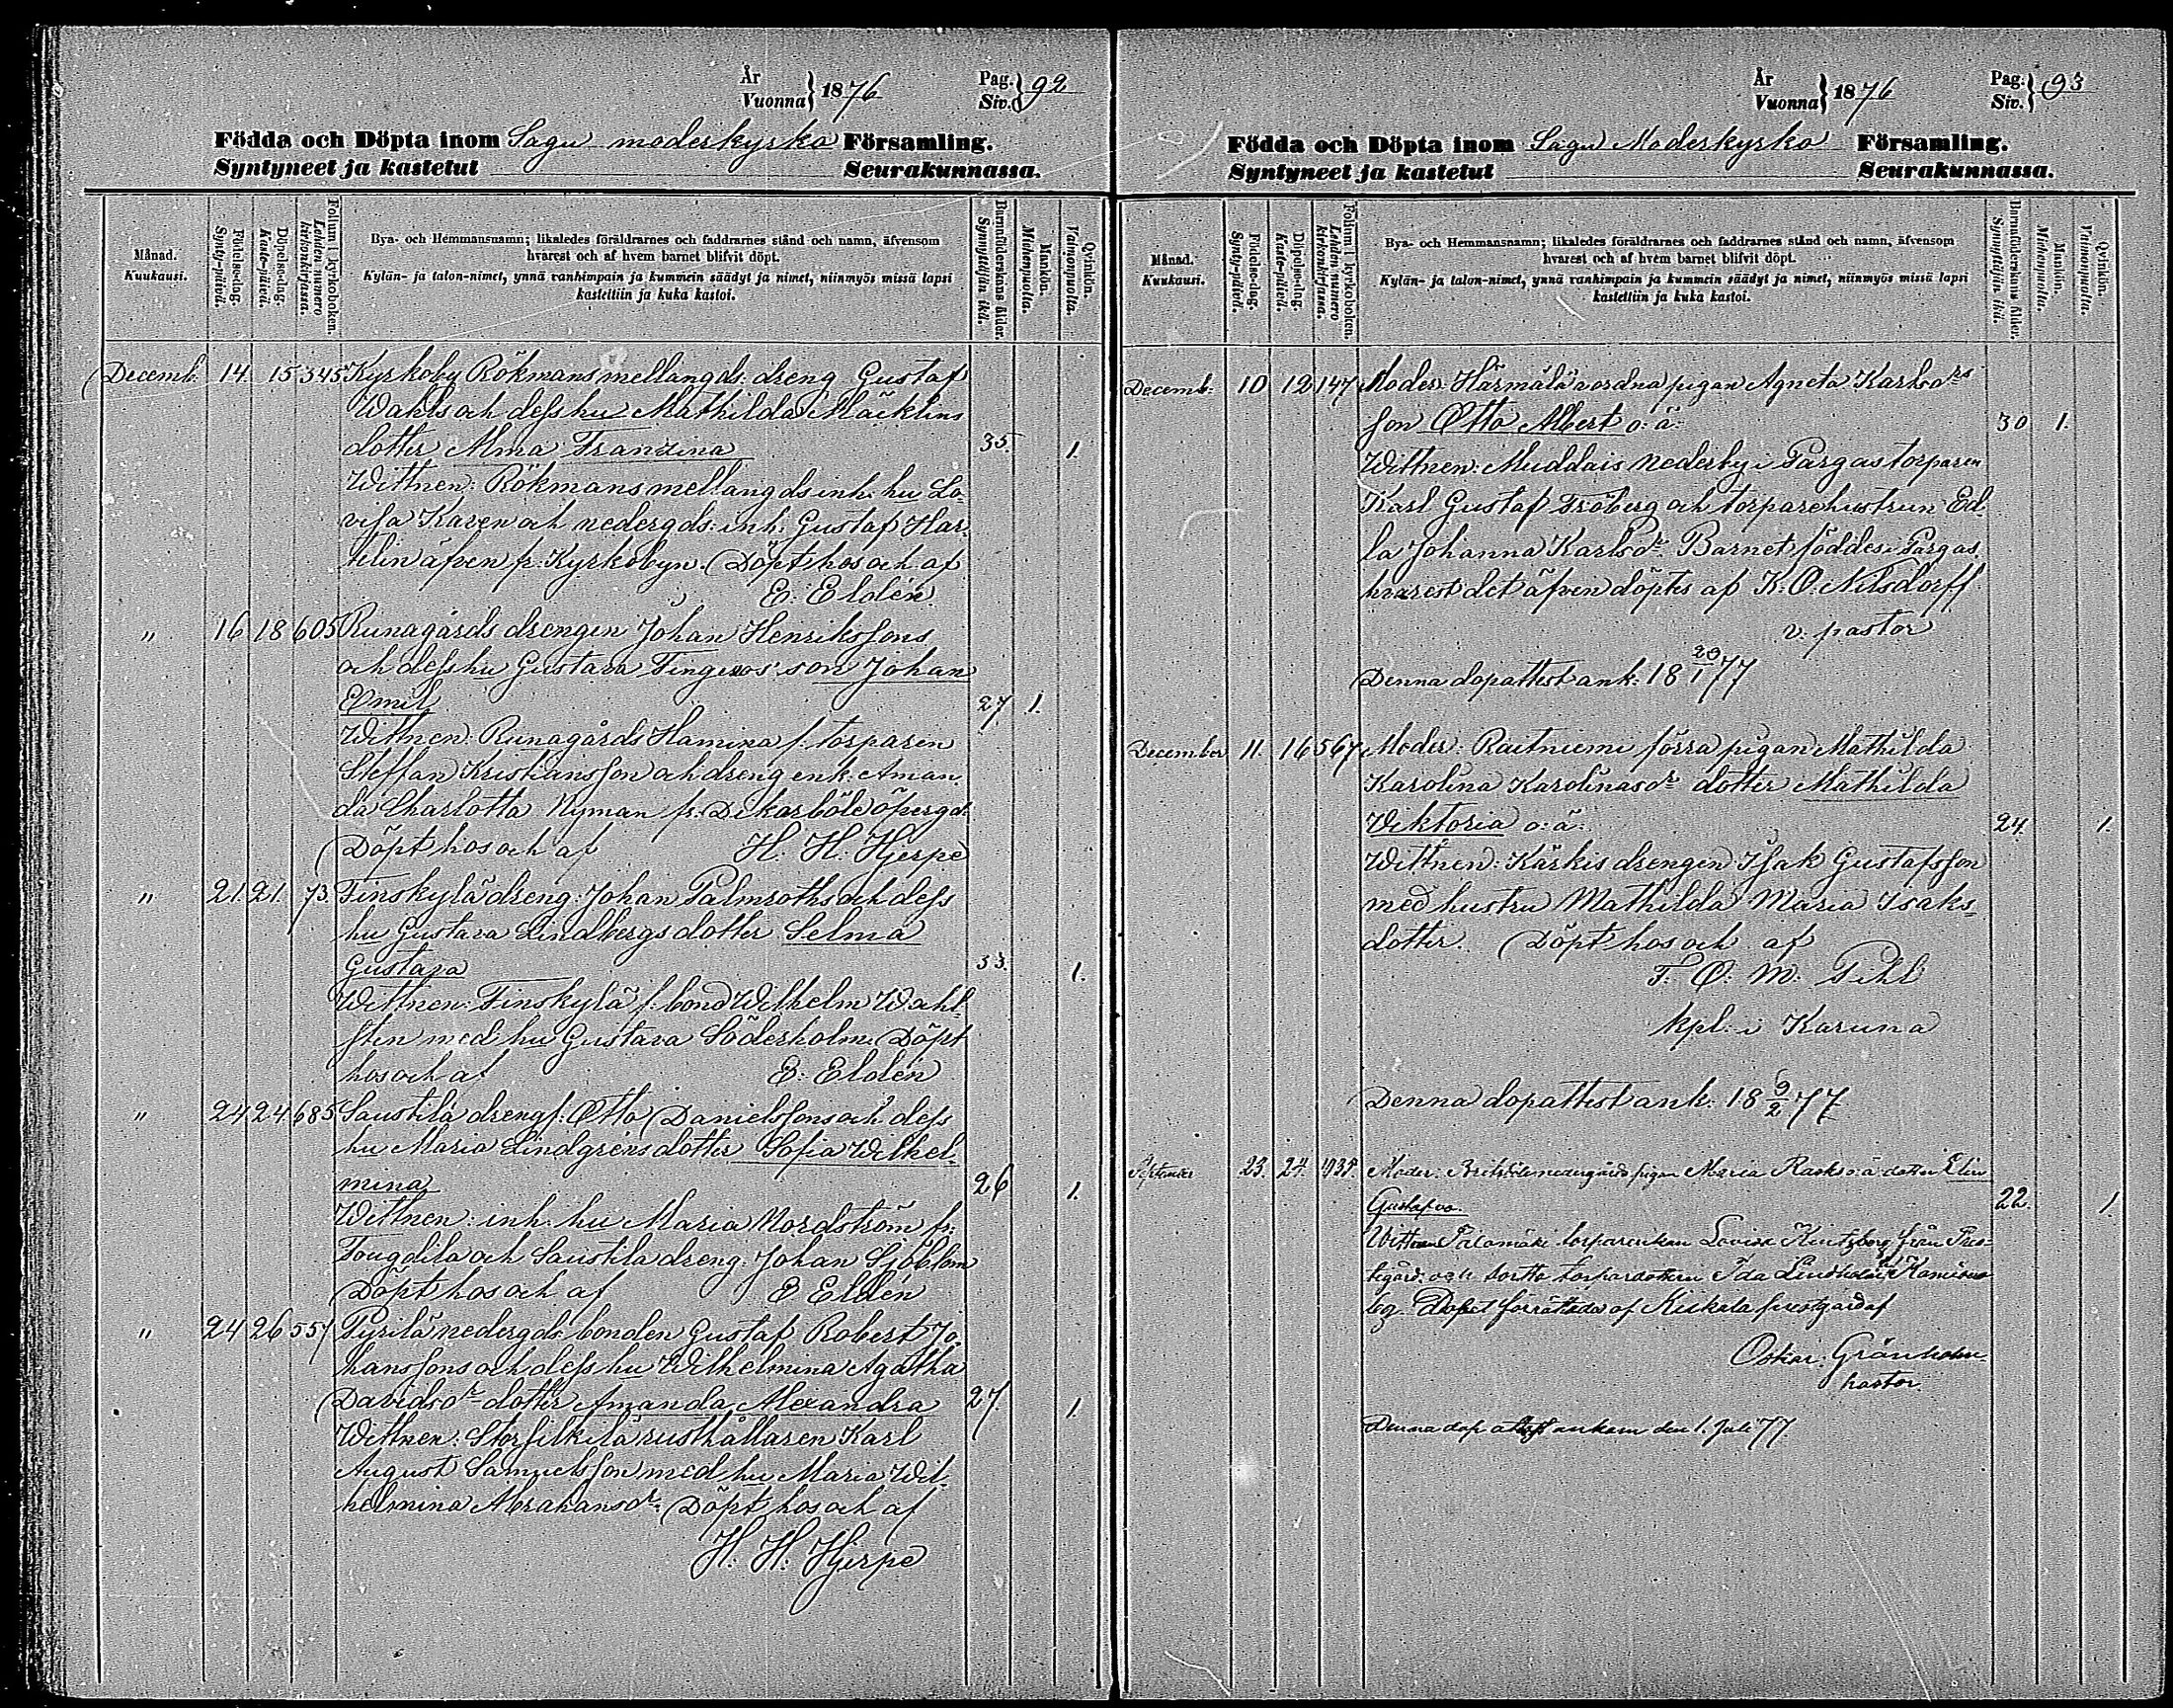 År
Vuonna } 1876
Pag.
Siv. } 92
Födda och Döpta inom Sagu moderkyrko Församling.
Syntyneet ja kastetut Seurakunnassa.
Månad.
Kuukausi.
Födelse-dag.
Synty-päivä.
Döpelse-dag.
Kaste-päivä.
Folium i kyrkoboken.
Lehden numero kirkonkirjassa.
Bya- och Hemmansnamn; likaledes föräldrarnes och faddrarnes stånd och namn, äfvensom
hvarest och af hvem barnet blifvit döpt.
Kylän- ja talon-nimet, ynnä vanhimpain ja kummein säädyt ja nimet, niinmyös missä lapsi
kastettiin ja kuka kastoi.
Barnaföderskans ålder.
Synnyttäjän ikä.
Mankön.
Miehenpuolta.
Qvinkön.
Vaimonpuolta.
Decemb. 14. 15 345 Kyrkoby Rökmans mellangds: dreng Gustaf
Wahls och dess hu Mathilda Mäcklins
dotter Alma Franzina 35. 1.
Wittnen: Rökmans mellangds inh. hu Lo-
visa Karen och nedergds: inh: Gustaf Har-
telin äfven fr: Kyrkobyn. Döpt hos och af
E. Eldén.
" 16 18 605 Runagårds drengen Johan Henrikssons
och dess hu Gustava Fingros' son Johan
Emil 27 1.
Wittnen: Runagårds Hamina f. torparen
Steffan Kristiansson och dreng enk: Aman-
da Charlotta Nyman fr: Dikarböle öfvergd:
Döpt hos och af H. H. Hjerpe
" 21. 21. 73. Finskylä dreng: Johan Palmroths och dess
hu Gustava Lindbergs dotter Selma
Gustava 33. 1.
Wittnen: Finskylä f. bond Wilhelm Wahl-
sten med hu Gustava Söderholm. Döpt
hos och af E. Eldén
" 24 24. 685 Saustila drengf: Otto Danielssons och dess
hu Maria Lindgréns dotter Sofia Wilhel-
mina 26 1.
Wittnen: inh. hu Maria Nordström fr:
Tougdila och Saustila dreng: Johan Sjöblom
Döpt hos och af E Eldén
" 24 26 557 Pyrilä nedergds: bonden Gustaf Robert Jo-
hanssons och dess hu Wilhelmina Agatha
Davidsdr dotter Amanda Alexandra 27. 1.
Wittnen: Storsilkilä rusthållaren Karl
August Samuelsson med hu Maria Wil-
helmina Abrahamsdr. Döpt hos och af
H. H. Hjerpe
År
Vuonna } 1876
Pag.
Siv. } 93
Födda och Döpta inom Sagu Moderkyrko Församling.
Syntyneet ja kastetut Seurakunnassa.
Månad.
Kuukausi.
Födelse-dag.
Synty-päivä.
Döpelse-dag.
Kaste-päivä.
Folium i kyrkoboken.
Lehden numero kirkonkirjassa.
Bya- och Hemmansnamn; likaledes föräldrarnes och faddrarnes stånd och namn, äfvensom
hvarest och af hvem barnet blifvit döpt.
Kylän- ja talon-nimet, ynnä vanhimpain ja kummein säädyt ja nimet, niinmyös missä lapsi
kastettiin ja kuka kastoi.
Barnaföderskans ålder.
Synnyttäjän ikä.
Mankön.
Miehenpuolta.
Qvinkön.
Vaimonpuolta.
Decemb. 10 12 147 Moder: Härmälä nordna pigan Agneta Karlsdrs
son Otto Albert o: ä: 30 1.
Wittnen: Muddais Nederby i Pargas torparen
Karl Gustaf Fröberg och torparehustrun Ed-
la Johanna Karlsdr Barnet föddes i Pargas
hvarest det äfven döptes af K. O. Nilsdorff
v: pastor
Denna dopattest ank: 18 20/1 77
December 11. 16 567 Moder: Raitniemi förra pigan Mathilda
Karolina Karolinasdr dotter Mathilda
Viktoria o: ä: 24. 1.
Wittnen: Kärkis drengen Isak Gustafsson
med hustru Mathilda Maria Isaks-
dotter. Döpt hos och af
F. O. M. Pihl
kpl: i Karuna
Denna dopattest ank. 18 9/2 77
23. 24. Moder: nedergårds pigan Maria Rasks o: ä dotter Elin
Gustafva. 22. 1.
Wittnen Palomäki torparenkan Lovisa från Pres-
tegård: och torpardottern Ida Lindholm
Dopet förrättades af Kiskala prestgård af
Oskar. Grönholm
pastor.
Denna dop attest ankom den 1. Juli 77